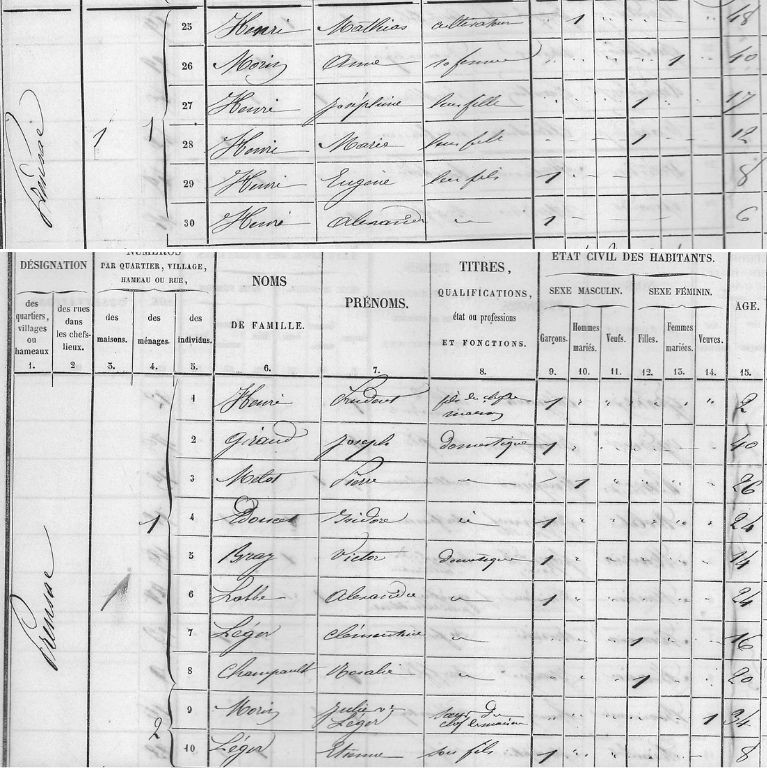 25 Henri Mathias cultivateur " 1 " " " " 48
26 Morin Anne sa femme " " " " 1 " 40
27 Henri Joséphine leur fille " " " 1 " " 17
Prensac 1 1 28 Henri Marie leur fille " " " 1 " " 12
29 Henri Eugène leur fils 1 8
30 Henri Alexandre " 1 6
DÉSIGNATION
NUMÉROS
PAR QUARTIER, VILLAGE,
HAMEAU OU RUE,
NOMS
DE FAMILLE.
PRÉNOMS.
TITRES,
QUALIFICATIONS,
état ou professions
ET FONCTIONS.
ETAT CIVIL DES HABITANTS.
SEXE MASCULIN. SEXE FÉMININ.
AGE.
des quartiers, villages ou hameaux
des rues dans les chefs-lieux.
des maisons.
des ménages.
des individus.
Garçons. Hommes mariés. Veufs. Filles. Femmes mariées. Veuves.
1. 2 3. 4. 5. 6. 7. 8. 9. 10. 11. 12. 13. 14. 15.
1 Henri Prudent fils du chef de maison 1 " " " " " 2
2 Giraud Joseph domestique 1 40
3 Melot Pierre " 1 26
1 4 Doucet Isidore id 1 24
5 Bray Victor domestique 1 14
Prensac 6 Labbé Alexandre " 1 24
7 Léger Clémentine " 1 16
8 Champault Rosalie " 1 20
9 Morin Julie ve Léger sœur du chef de maison 1 34
2 10 Léger Etienne son fils 1 8